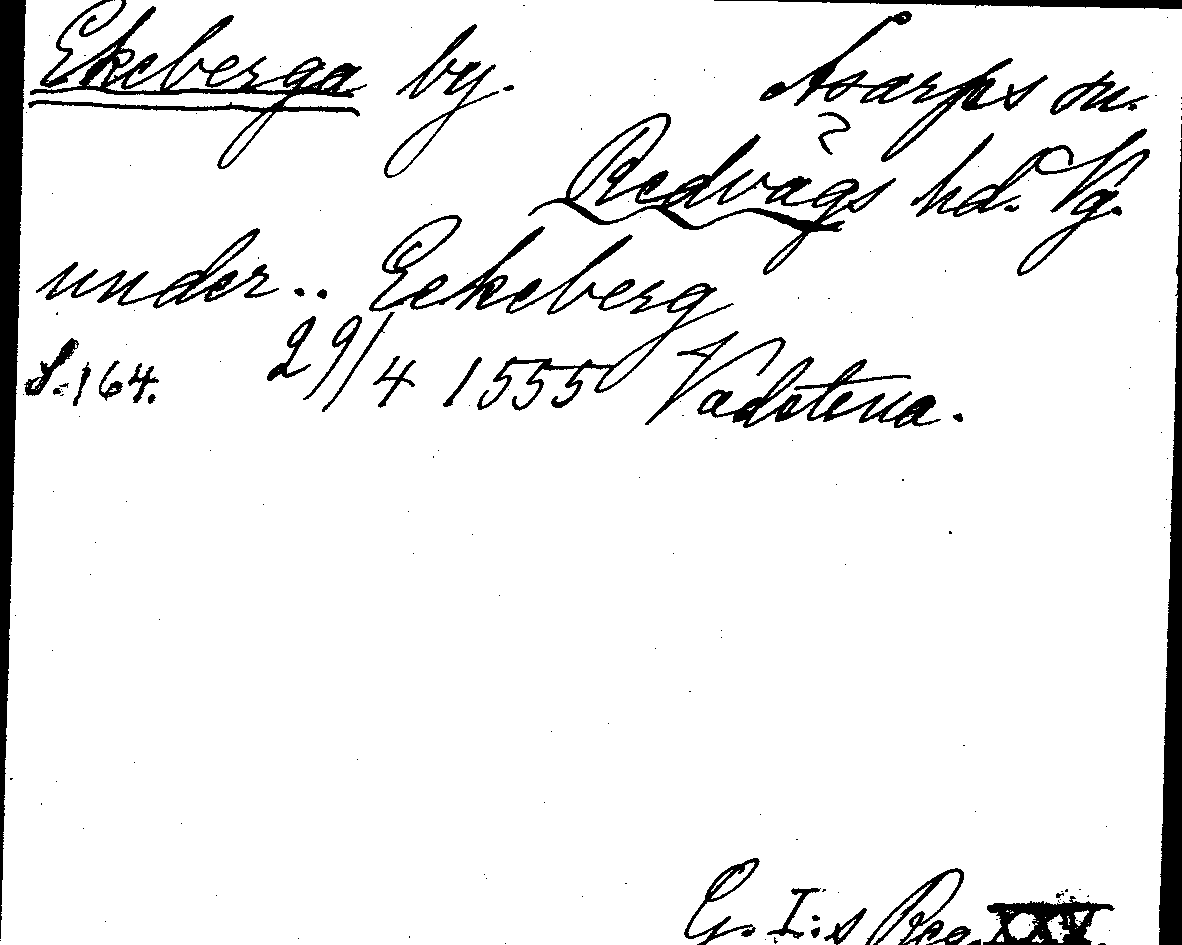 Ekeberga by. Åsarps sn.
Redvägs hd. Vg.
under.. Eekeberg
S. 164. 29/4 1555 Vadstena.
G. I:s Reg. XXV